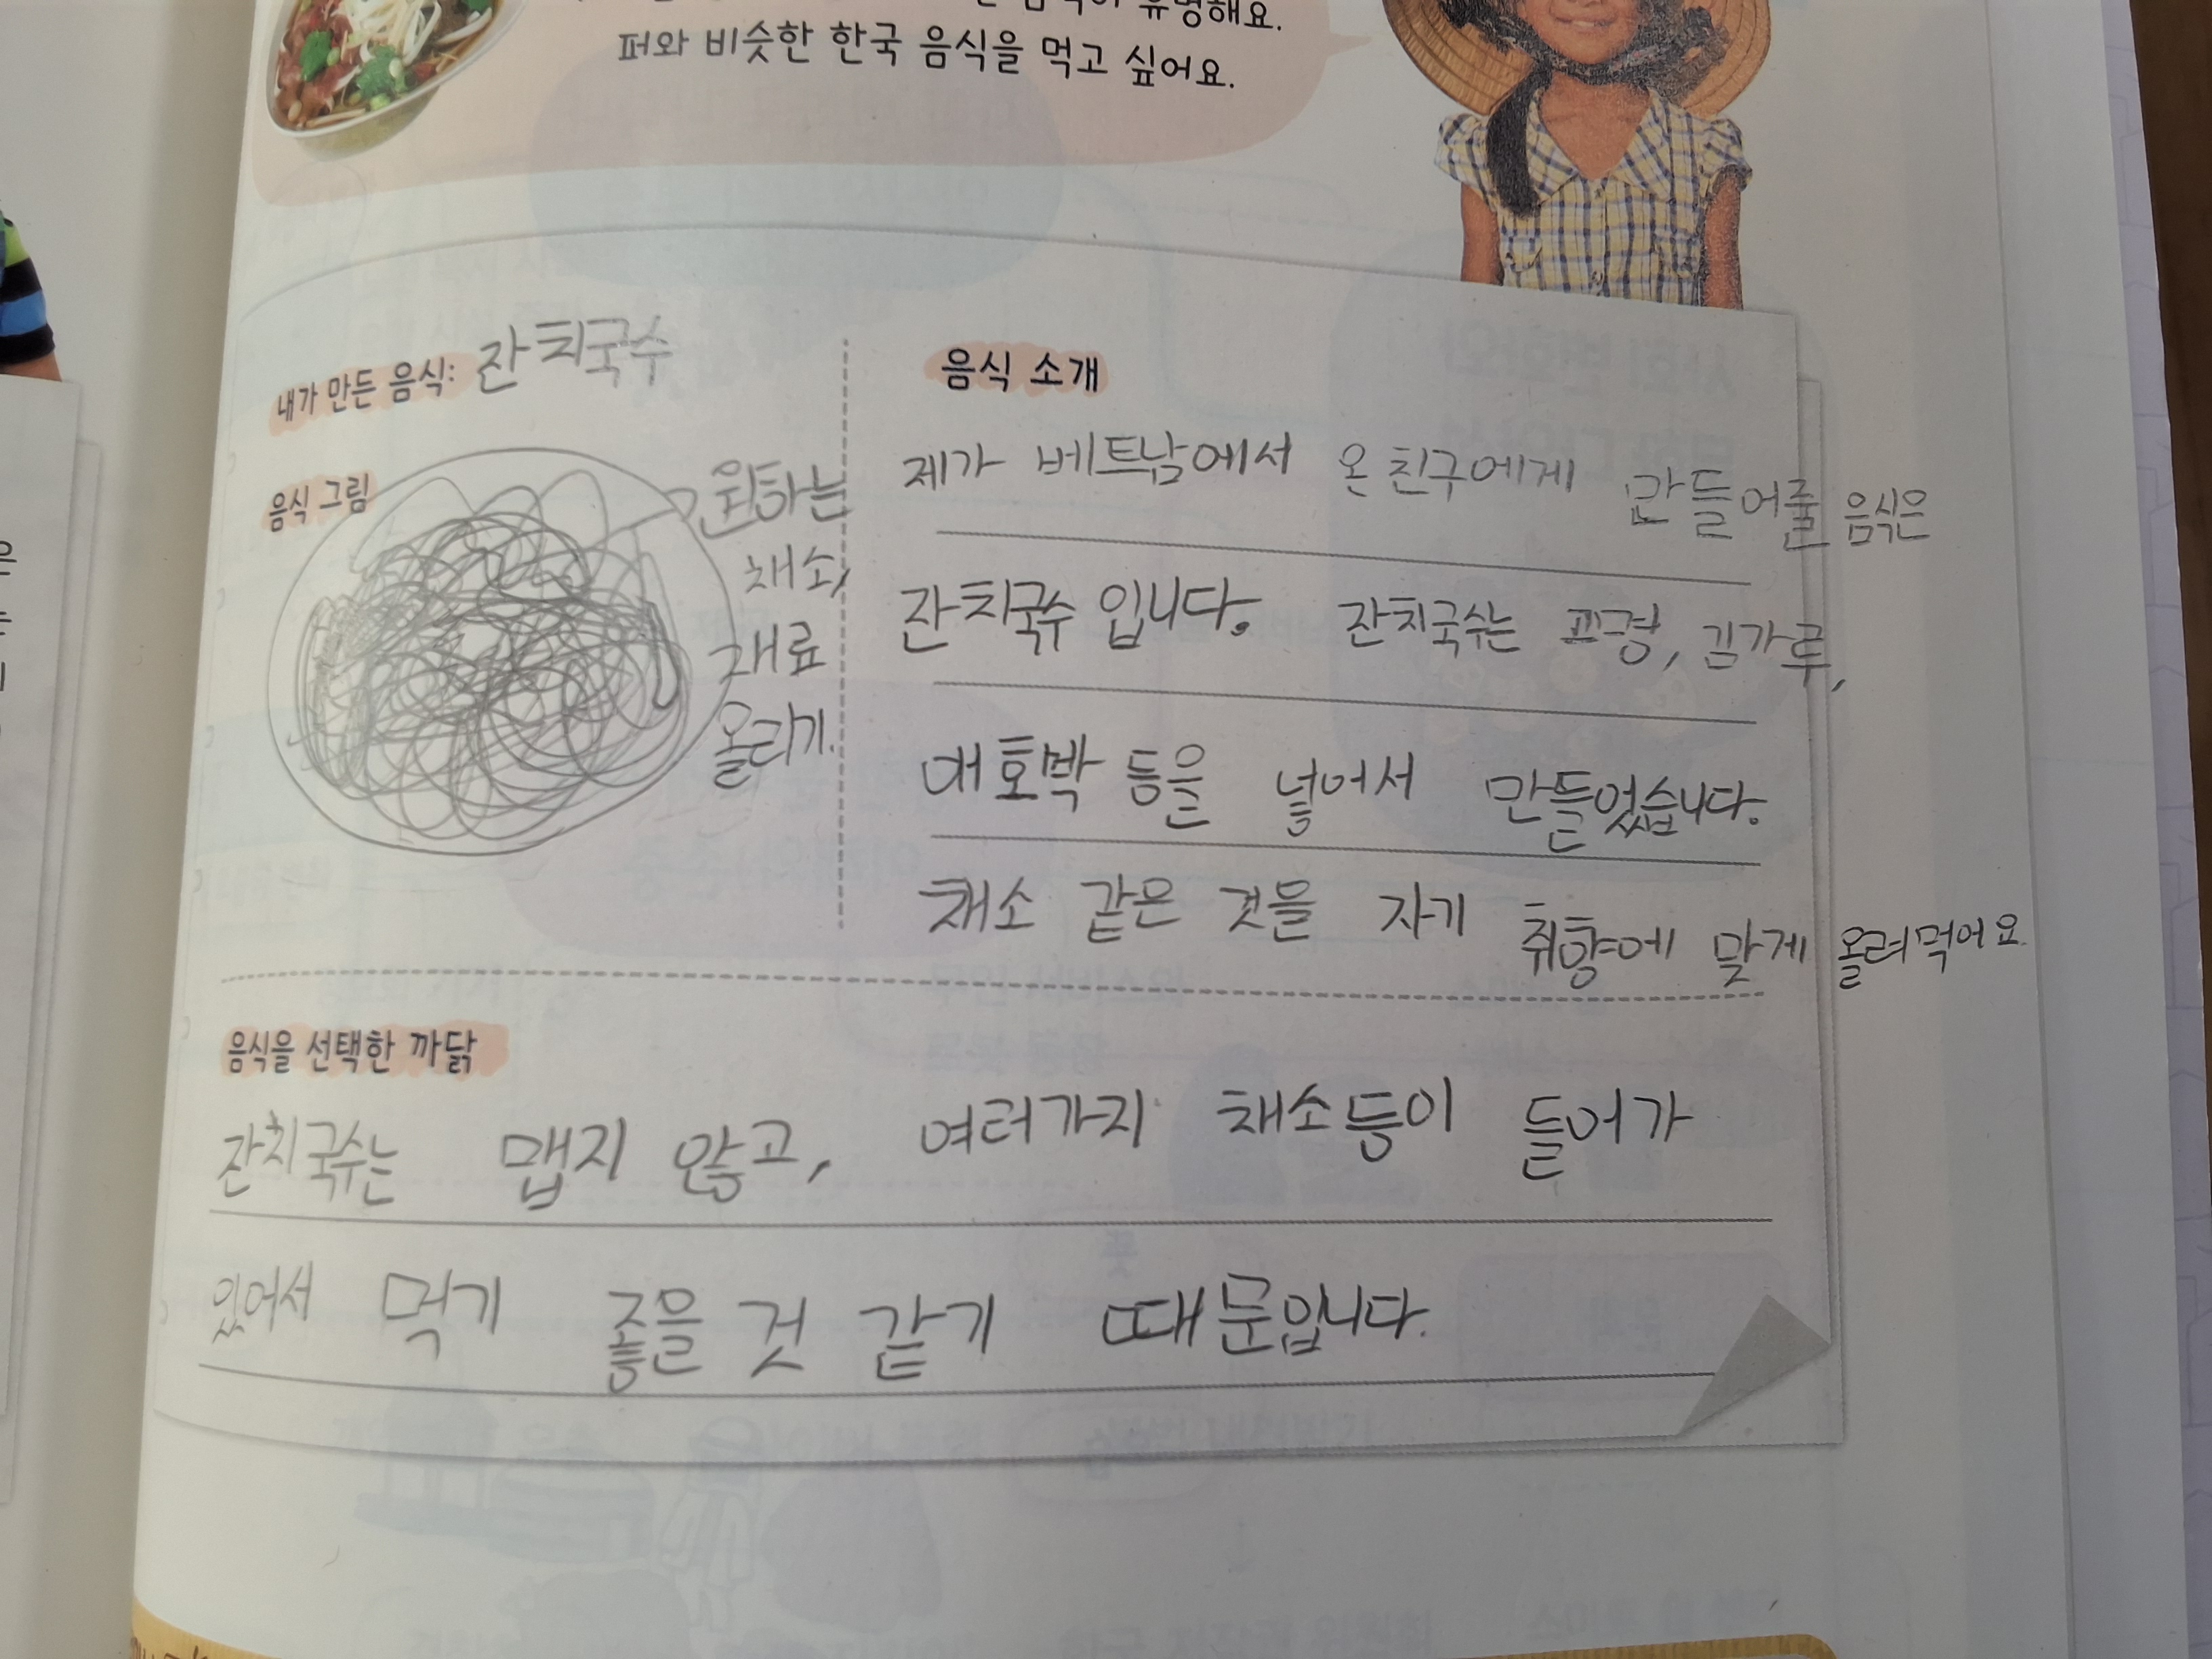 유명해요.
퍼와 비슷한 한국 음식을 먹고 싶어요.
내가 만든 음식: 잔치국수
음식 그림
원하는
채소,
재료
올리기.
음식 소개
제가 베트남에서 온 친구에게 만들어줄 음식은
잔치국수 입니다. 잔치국수는 고명, 김가루,
애호박 등을 넣어서 만들었습니다.
채소 같은 것을 자기 취향에 맞게 올려먹어요
음식을 선택한 까닭
잔치국수는 맵지 않고, 여러가지 채소등이 들어가
있어서 먹기 좋을 것 같기 때문입니다.